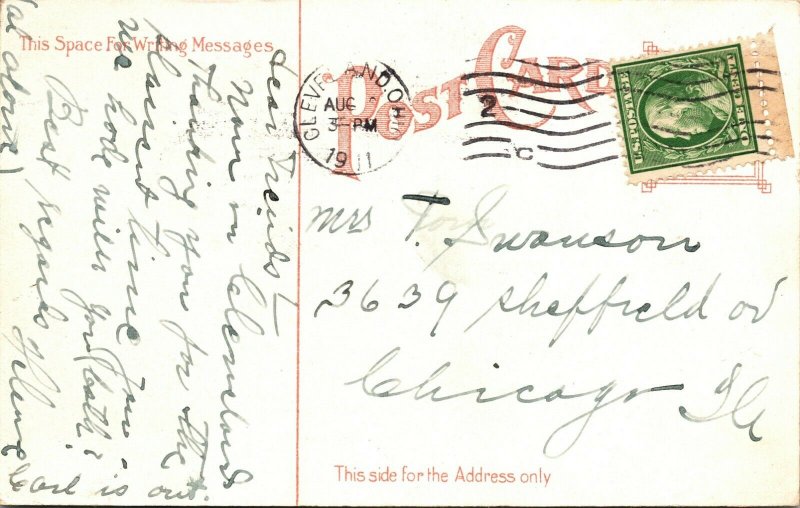 This Space For Writing Messages
POST CARD
CLEVELAND, OHIO
AUG
3-PM
1911
2
C
U.S. POSTAGE
Dear Friends!
Now in Cleveland
Thanking you for the
plasent time you
me hode with you (both)
Best regards
Carl is out
Mrs T. Swanson
3639 Sheffield av
Chicago Ill
This side for the Address only